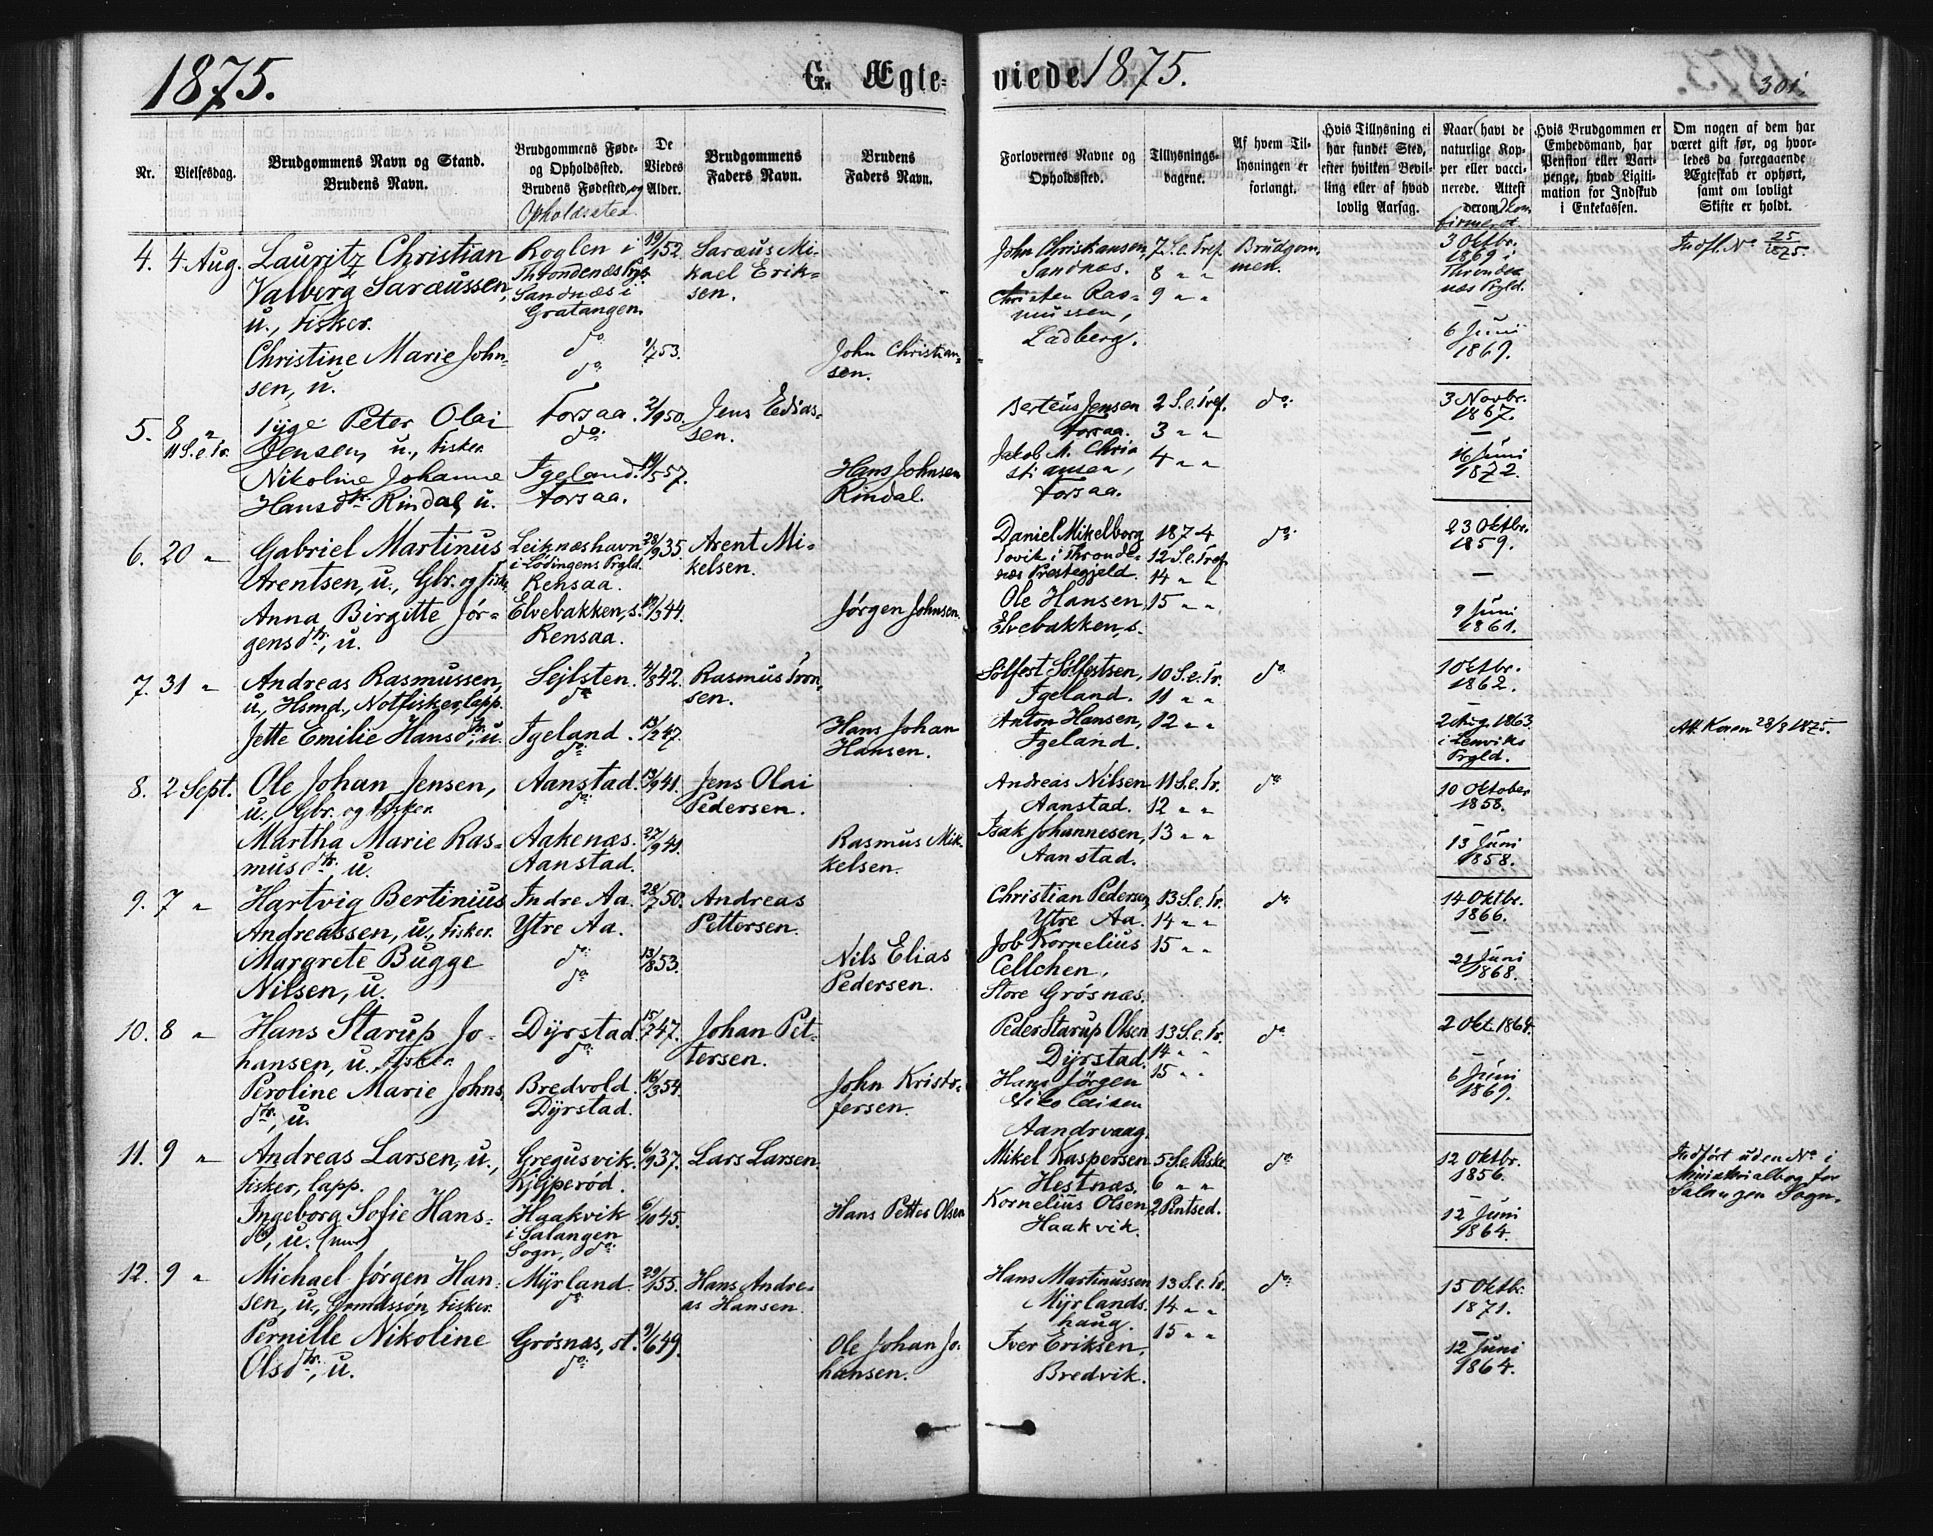 1875.
G. Ægte-
Nr.
Vielsesdag.
Brudgommens Navn og Stand.
Brudens Navn.
Brudgommens Føde-
og Opholdssted.
Brudens Fødested, og
Opholdssted
De
Viedes
Alder.
Brudgommens
Faders Navn.
Brudens
Faders Navn.
4. 4 Aug.
Lauritz Christian
Valberg Saræussen,
u., Fisker.
Christine Marie John-
sen, u.
Roglen i
Throndenæs Prgl.
Sandnæs i
Gratangen.
do
do
19/1 52.
9/7 53.
Saræus Mi-
kael Erik-
sen.
John Christian-
sen.
5. 8 "
11 S. e. Tr.
Tyge Peter Olai
Jensen, u., Fisker
Nikoline Johanne
Hansdtr Rindal, u.
Forsaa.
do
Igeland.
Forsaa.
2/9 50.
19/5 57.
Jens Edias-
sen.
Hans Johnsen
Rindal.
6. 20 "
Gabriel Martinus
Arentsen, u., Gbr. og Fisk.
Anna Birgitte Jør-
gensdtr, u.
Leiknæshavn
i Lødingens Prgld.
Rensaa.
Elvebakken, s.
Rensaa.
28/9 35.
19/3 44.
Arent Mi-
kelsen.
Jørgen Johnsen.
7. 31 "
Andreas Rasmussen,
u., Hsmd., Notfisker, lapp.
Jette Emilie Hansdtr, u.
Sejlsten.
do
Igeland.
do
4/8 42.
13/2 47.
Rasmus Tron-
sen.
Hans Johan
Hansen.
8. 2 Sept.
Ole Johan Jensen,
u., Gbr. og Fisker.
Martha Marie Ras-
musdtr. u.
Aanstad.
do
Aakenæs.
Aanstad.
13/9 41.
27/9 41.
Jens Olai
Pedersen.
Rasmus Mik-
kelsen.
9. 7 "
Hartvig Bertinius
Andreassen, u., Fisker.
Margrete Bugge
Nilsen, u.
Indre Aa.
Ytre Aa.
do
do
28/7 50.
13/8 53.
Andreas
Pettersen.
Nils Elias
Pedersen.
10. 8 "
Hans Starup Jo-
hansen, u., Fisker.
Peroline Marie Johns
dtr, u.
Dÿrstad
do
Bredvold.
Dÿrstad.
15/7 47.
16/3 54.
Johan Pet-
tersen.
John Kristo-
fersen.
11. 9 "
Andreas Larsen, u.,
Fisker, lapp.
Ingeborg Sofie Hans-
dtr, u.
Gregusvik.
Kjÿperod.
Haakvik
i Salangen
Sogn, do
6/9 37.
6/10 45.
Lars Larsen.
Hans Petter Olsen
12. 9 "
Michael Jørgen Han-
sen, u., Grmdssøn, Fisker.
Pernille Nikoline
Olsdtr, u.
Mÿrland.
do
Grøsnæs, st.
do
29/1 55.
9/6 49.
Hans Andre-
as Hansen.
Ole Johan Jo-
hansen.
viede 1875.
301.
Forlovernes Navne og
Opholdssted.
Tillysnings-
dagene.
Af hvem Til-
lysningen er
forlangt.
Hvis Tillysning ei
har fundet Sted,
efter hvilken Bevil-
ling eller af hvad
lovlig Aarsag.
Naar (havt de
naturlige Kop-
per eller vacci-
nerede. Attest
derom) kon
firmeret
Hvis Brudgommen er
Embedsmand, har
Pension eller Vart-
penge, hvad Ligiti-
mation for Indskud
i Enkekassen.
Om nogen af dem har
været gift før, og hvor-
ledes da foregaaende
Ægteskab er ophørt,
samt om lovligt
Skifte er holdt.
John Christiansen,
Sandnæs.
Christen Ras-
mussen,
Ladberg.
7 S. e. Tref.
8 " "
9 " "
Brudgom-
men.
3 Oktbr.
1869 i
Thronde
næs Prgld.
—
6 Juni
1869.
Indfl. No 25/1875.
Berteus Jensen
Forsaa.
Jakob A. Chris
stiansen,
Forsaa.
2 S. e. Tref.
3 " "
4 " "
do
3 Novbr.
1867.
—
16 Juni
1872.
Daniel Mikelborg
Tovik i Thronde-
næs Prestegjeld.
Ole Hansen,
Elvebakken, s.
1874
12 S. e. Tref.
14 " "
15 " "
do
23 Oktbr.
1859.
—
9 Juni
1861.
Sølfest Sølfestsen,
Igeland.
Anton Hansen,
Igeland.
10 S. e. Tr.
11 " "
12 " "
do
1 Oktbr.
1862.
—
2 Aug. 1863
i Lenviks
Prgld.
Att. Koren 28/8 1875.
Andreas Nilsen
Aanstad.
Isak Johannesen,
Aanstad.
11 S. e. Tr.
12 " "
13 " "
do
10 Oktober
1858.
—
13 Juni
1858.
Christian Pedersen,
Ytre Aa.
Job Kornelius
Cellchen,
Store Grøsnæs.
13 S. e. Tr.
14 " "
15 " "
do
14 Oktbr.
1866.
—
21 Juni
1868.
Peder Starup Olsen
Dÿrstad.
Hans Jørgen
Nikolaisen
Aandrvaag.
13 S. e. Tr.
14 " "
15 " "
do
2 Okt. 1864.
—
6 Juni
1869.
Mikel Kaspersen
Hestnæs.
Kornelius Olsen,
Haakvik.
5 S. e. Paske.
6 " "
2 Pintsed.
do
12 Oktbr.
1856.
—
12 Juni
1864.
Indført uden No i
Ministerialbog for
Salangen Sogn.
Hans Martinussen
Mÿrlands
haug.
Iver Eriksen,
Bredvik.
13 S. e. Tr.
14 " "
15 " "
do
15 Oktbr.
1871.
—
12 Juni
1864.